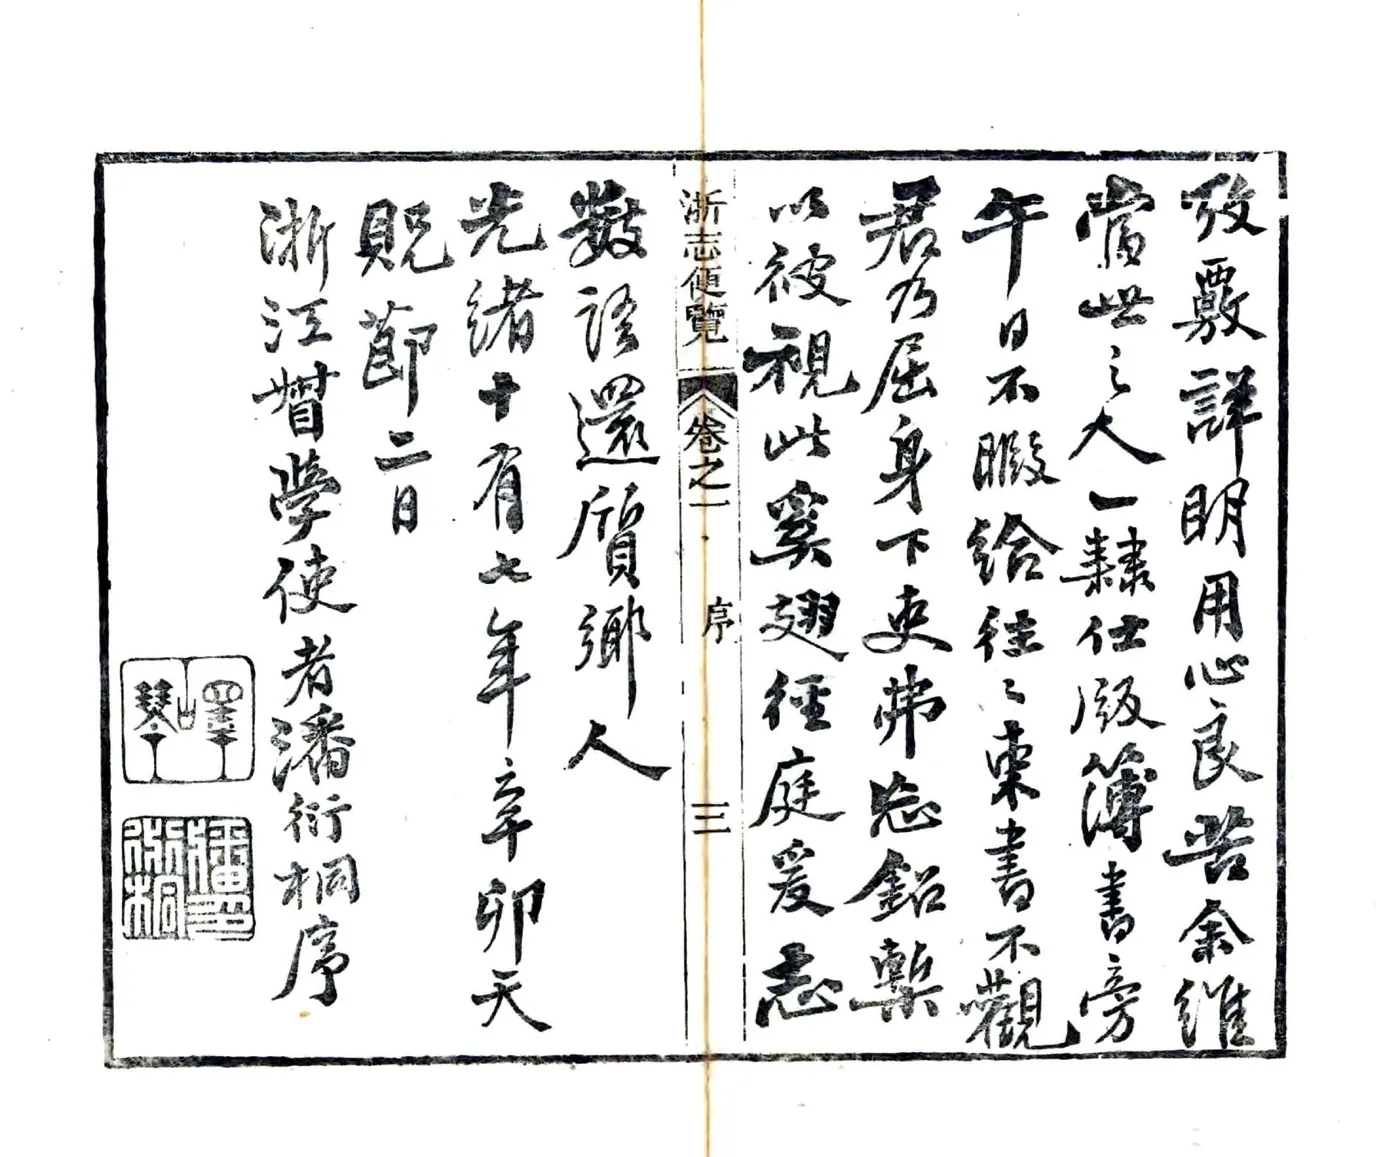 攷覈詳明用心良苦余維
當世之大一隸仕版簿書旁
午日不暇給往〻束書不觀
君乃屈身下吏弗忘鉛槧
以彼視此奚翅徑庭爰志
浙志便覽 卷之一 序 三
數語還質鄉人
光緒十有七年辛卯天
貺節二日
浙江督學使者潘衍桐序
嶧琴
潘衍桐